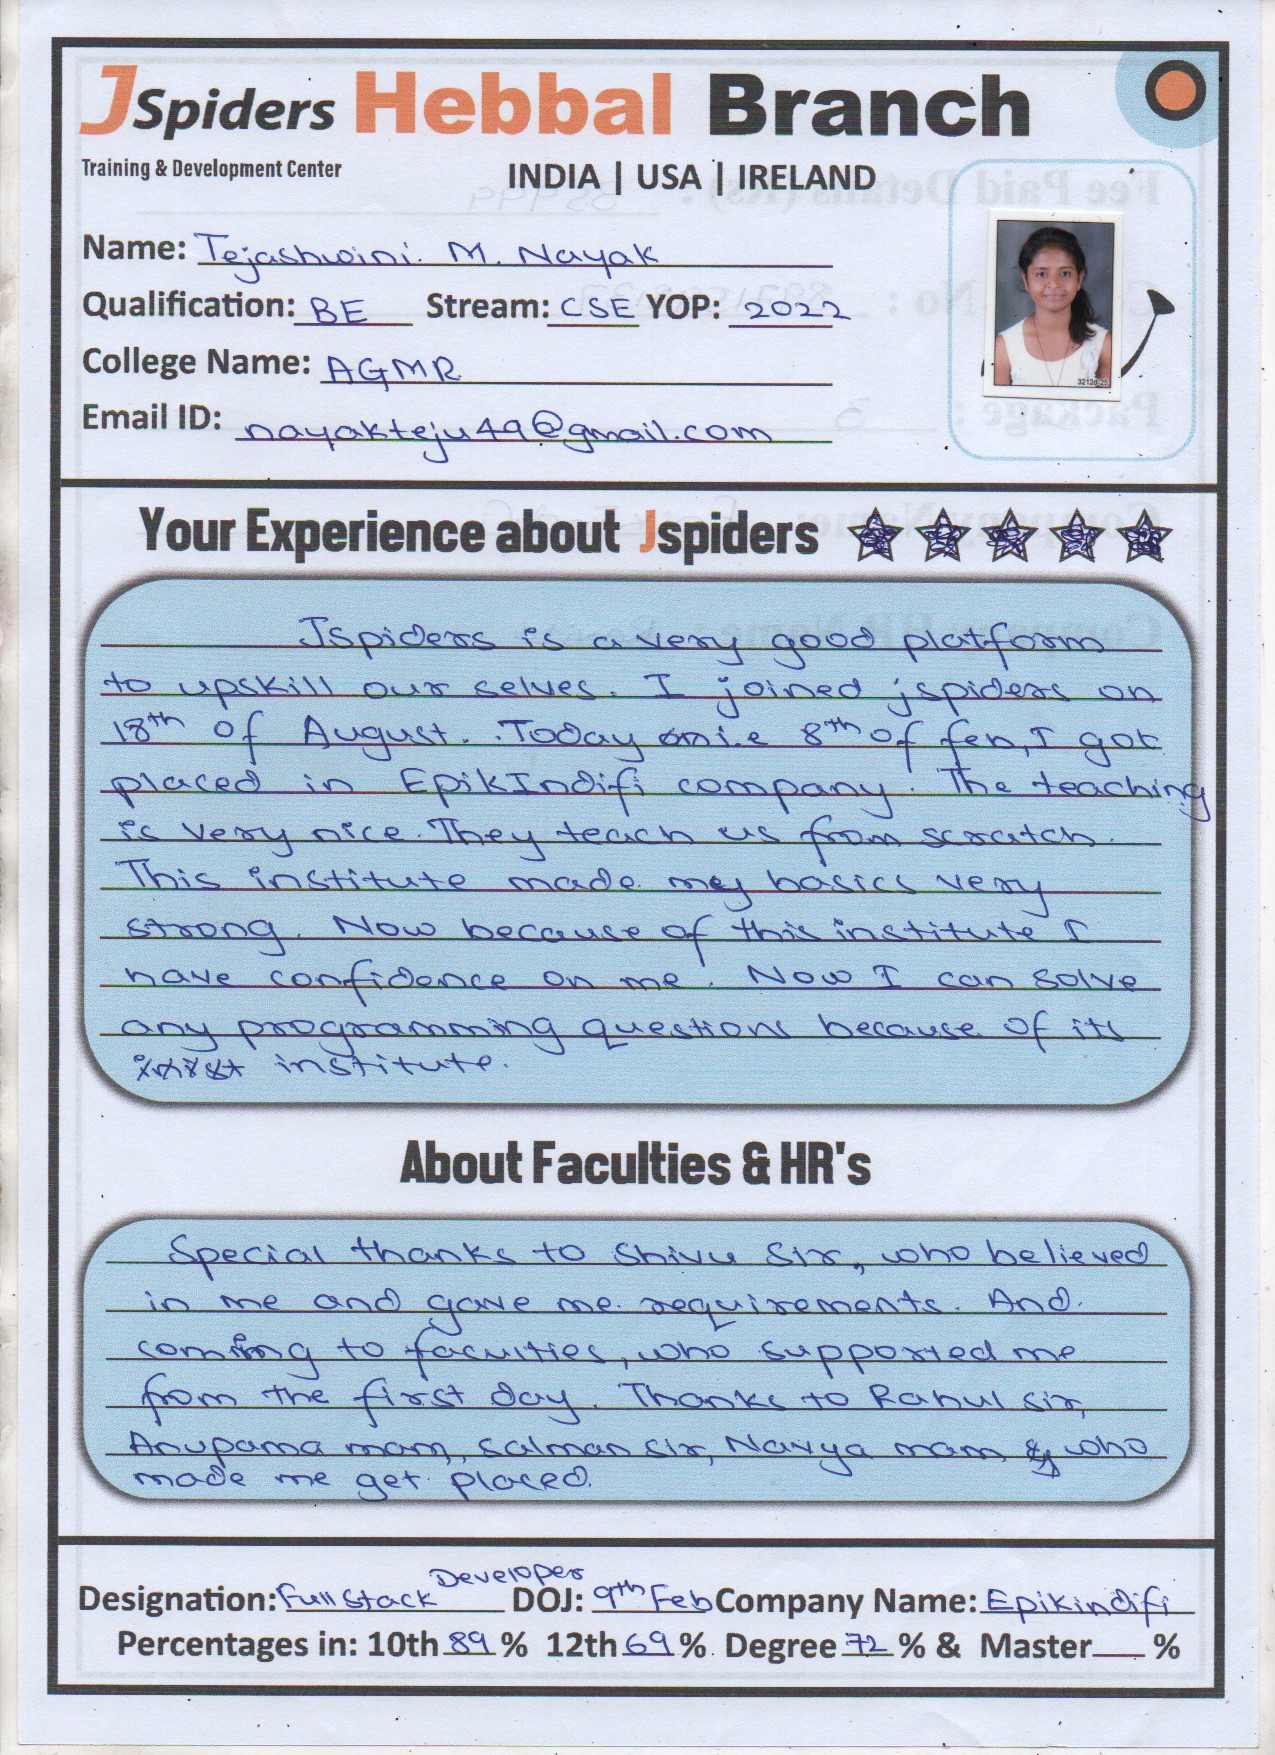 JSpiders Hebbal Branch
Training & Development Center
INDIA | USA | IRELAND
Name: Tejashwini. M. Nayak
Qualification: BE Stream: CSE YOP: 2022
College Name: AGMR
Email ID: nayakteju49@gmail.com
3212d-25
Your Experience about Jspiders
Jspiders is a very good platform
to upskill our selves. I joined jspiders on
18th of August. Today i.e 8th of feb, I got
placed in EpikIndifi company. The teaching
is very nice. They teach us from scratch.
This institute made my basics very
strong. Now because of this institute I
have confidence on me. Now I can solve
any programming questions because of its
institute.
About Faculties & HR's
Special thanks to Shivu Sir, who believed
in me and gave me requirements. And
coming to faculties, who supported me
from the first day. Thanks to Rahul sir,
Anupama mam, salman sir, Navya mam & who
made me get placed.
Designation: Full Stack Developer DOJ: 9th Feb Company Name: Epikindifi
Percentages in: 10th 89 % 12th 69 % Degree 72 % & Master %